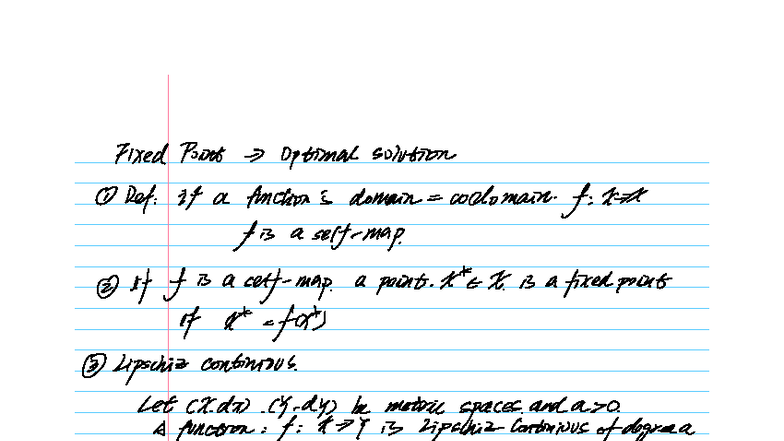 Fixed Point ⇒ Optimal solution
① Def: If a fnction's domain = codomain. f: X→X
f is a self-map.
② If f is a self-map. a point. x* ∈ X. is a fixed point
if x* = f(x*)
③ Lipschiz continuous.
Let (X.dx) (Y.dy) be metric spaces. and a>0.
A function: f: X→Y is Lipschiz continuous of degree a